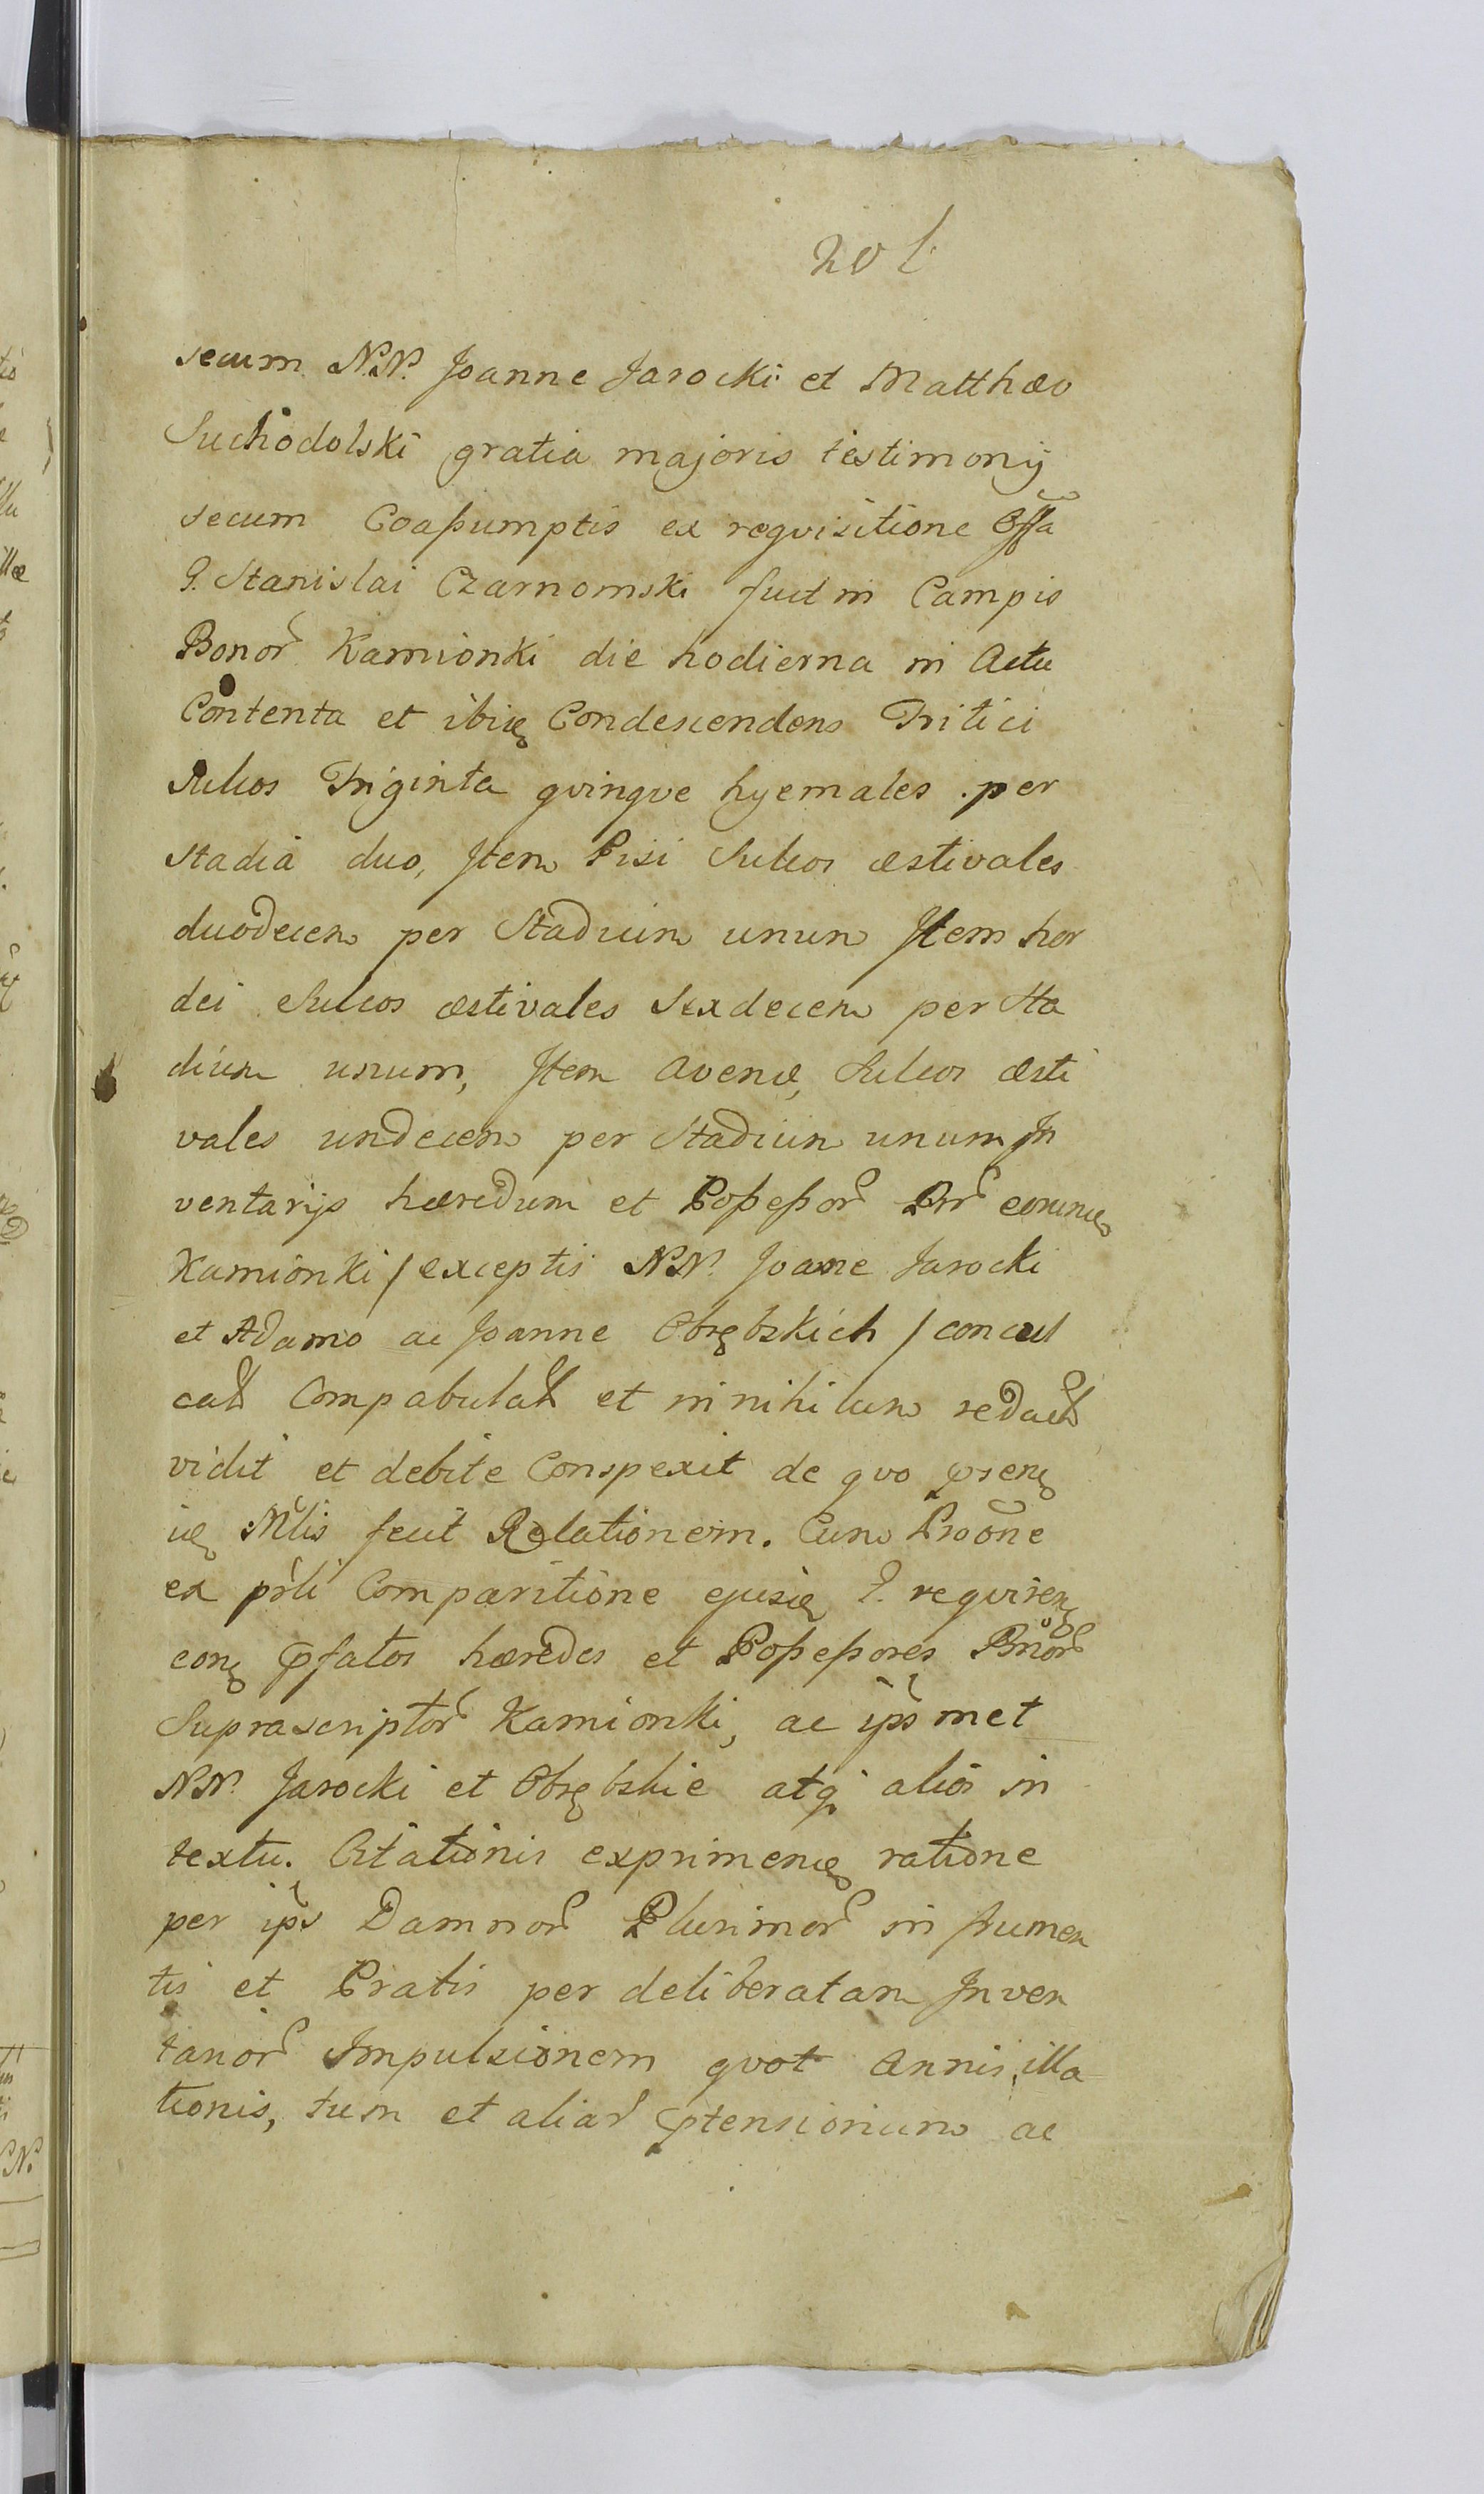 201
secum N.N. Joanne Jarocki et Matthæo
Suchodolski gratia majoris testimonij
secum Coaßumptis ex reqvisitione Offa
G. Stanislai Czarnomski fuit in Campis
Bonor Kamionki die hodierna in Actu
Contenta et ibiq Condescendens Tritici
Sulcos Triginta qvinqve hyemales per
Stadia duo, Item Pisi Sulcos æstivales
duodecem per Stadium unum Item hor
dei Sulcos æstivales Sexdecem per Sta
dium unum, Item Avenæ, Sulcos æsti
vales undecem per Stadium unum In
ventarijs hæredum et Poßeßor Bnr eorund
Kamionki / exceptis NN. Joane Jarocki
et Adamo ac Joanne Obrębskich / concul
cat Compabulat et in nihilum redact
vidit et debite Conspexit de qvo prsen
iq Mlis fecit Relationem. Cum Prone
ex prli Comparitione ejusd G. reqviren
con prfatos hæredes et Poßeßores Bnor
Suprascriptor Kamionki, ac ips met
NN. Jarocki et Obrębskie atq alios in
textu Citationis exprimend ratione
per ips Damnor Plurimor in frumen
tis et Pratis per deliberatam Inven
tarior Impulsionem qvot Annis, illa
tionis, tum et aliar prtensionum ac